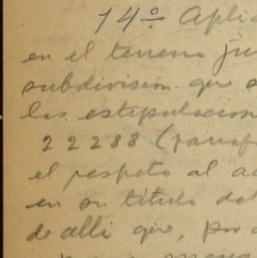 14º Aplic
en el terreno ju
subdivision que
las estipulacion
22288 (transf
el respeto al a
en su titulo de
de alli que, por